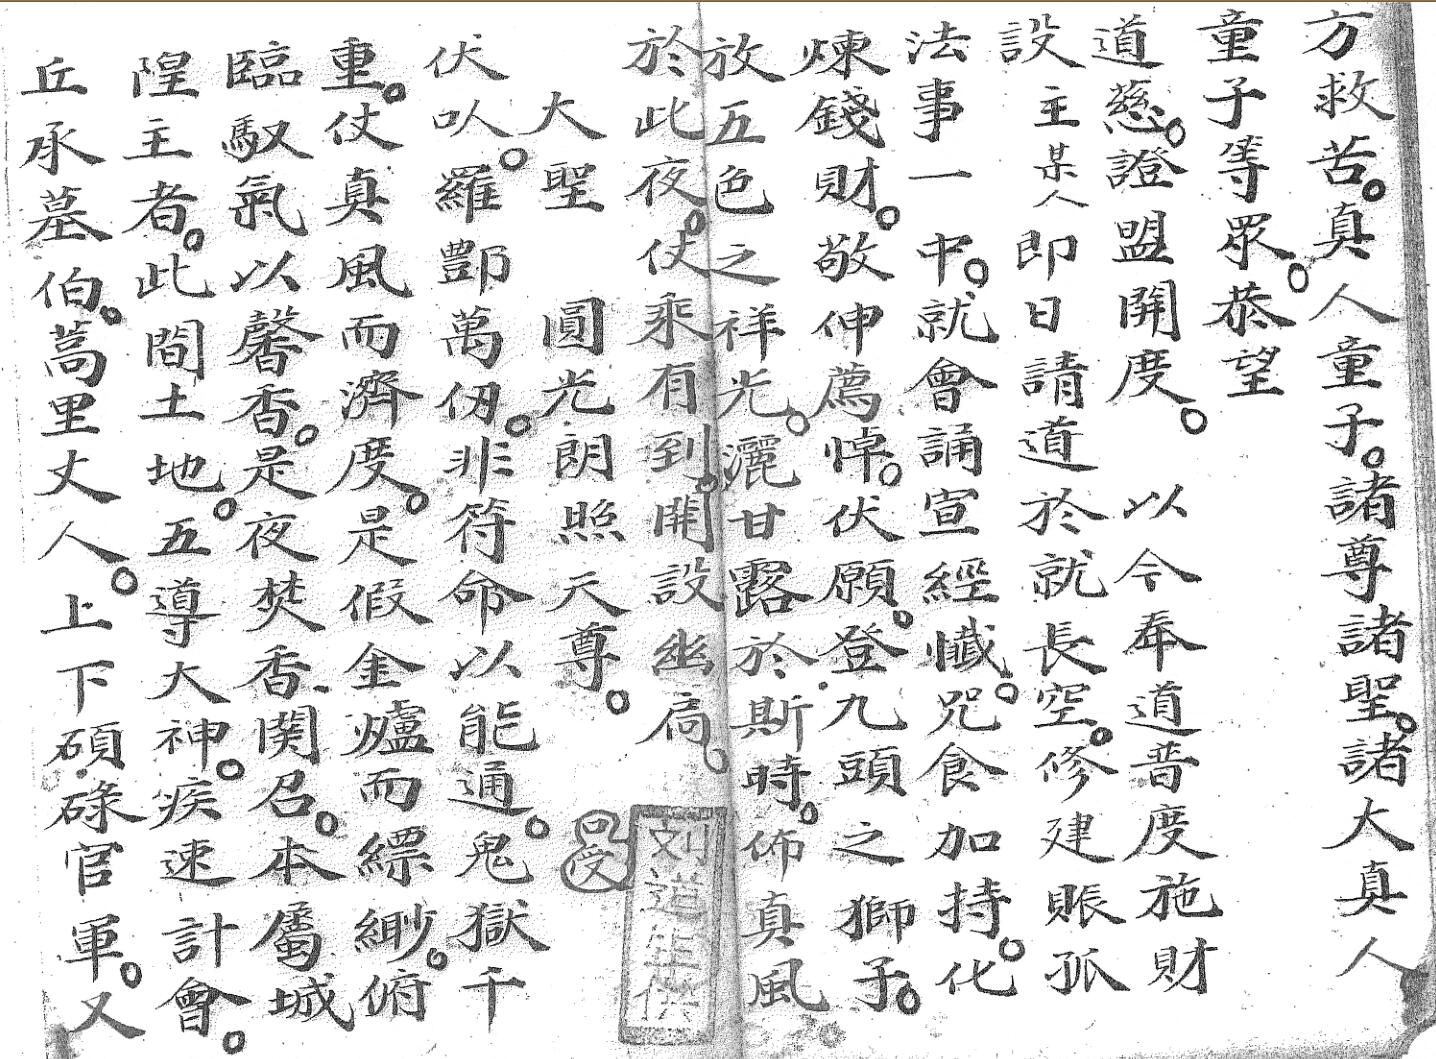 方救苦。真人童子。諸尊諸聖。諸大真人
童子等眾。恭望
道慈。證盟開度。以今奉道普度施財
設主某人即日請道於就長空。修建賬孤
法事一中。就會誦宣經懺。咒食加持。化
煉錢財。敬伸薦悼。伏願。登九頭之獅子。
放五色之祥光。灑甘露於斯時。佈真風
於此夜。仗乘有到。開設幽扃。
大聖圓光朗照天尊。
伏以。羅酆萬仞。非符命以能通。鬼獄千
重。仗真風而濟度。是假金爐而縹緲。俯
臨馭氣以馨香。是夜焚香関召。本屬城
隍主者。此間土地。五導大神。疾速計會。
丘承墓伯。蒿里丈人。上下碩碌官軍。又
口受
刘道生供